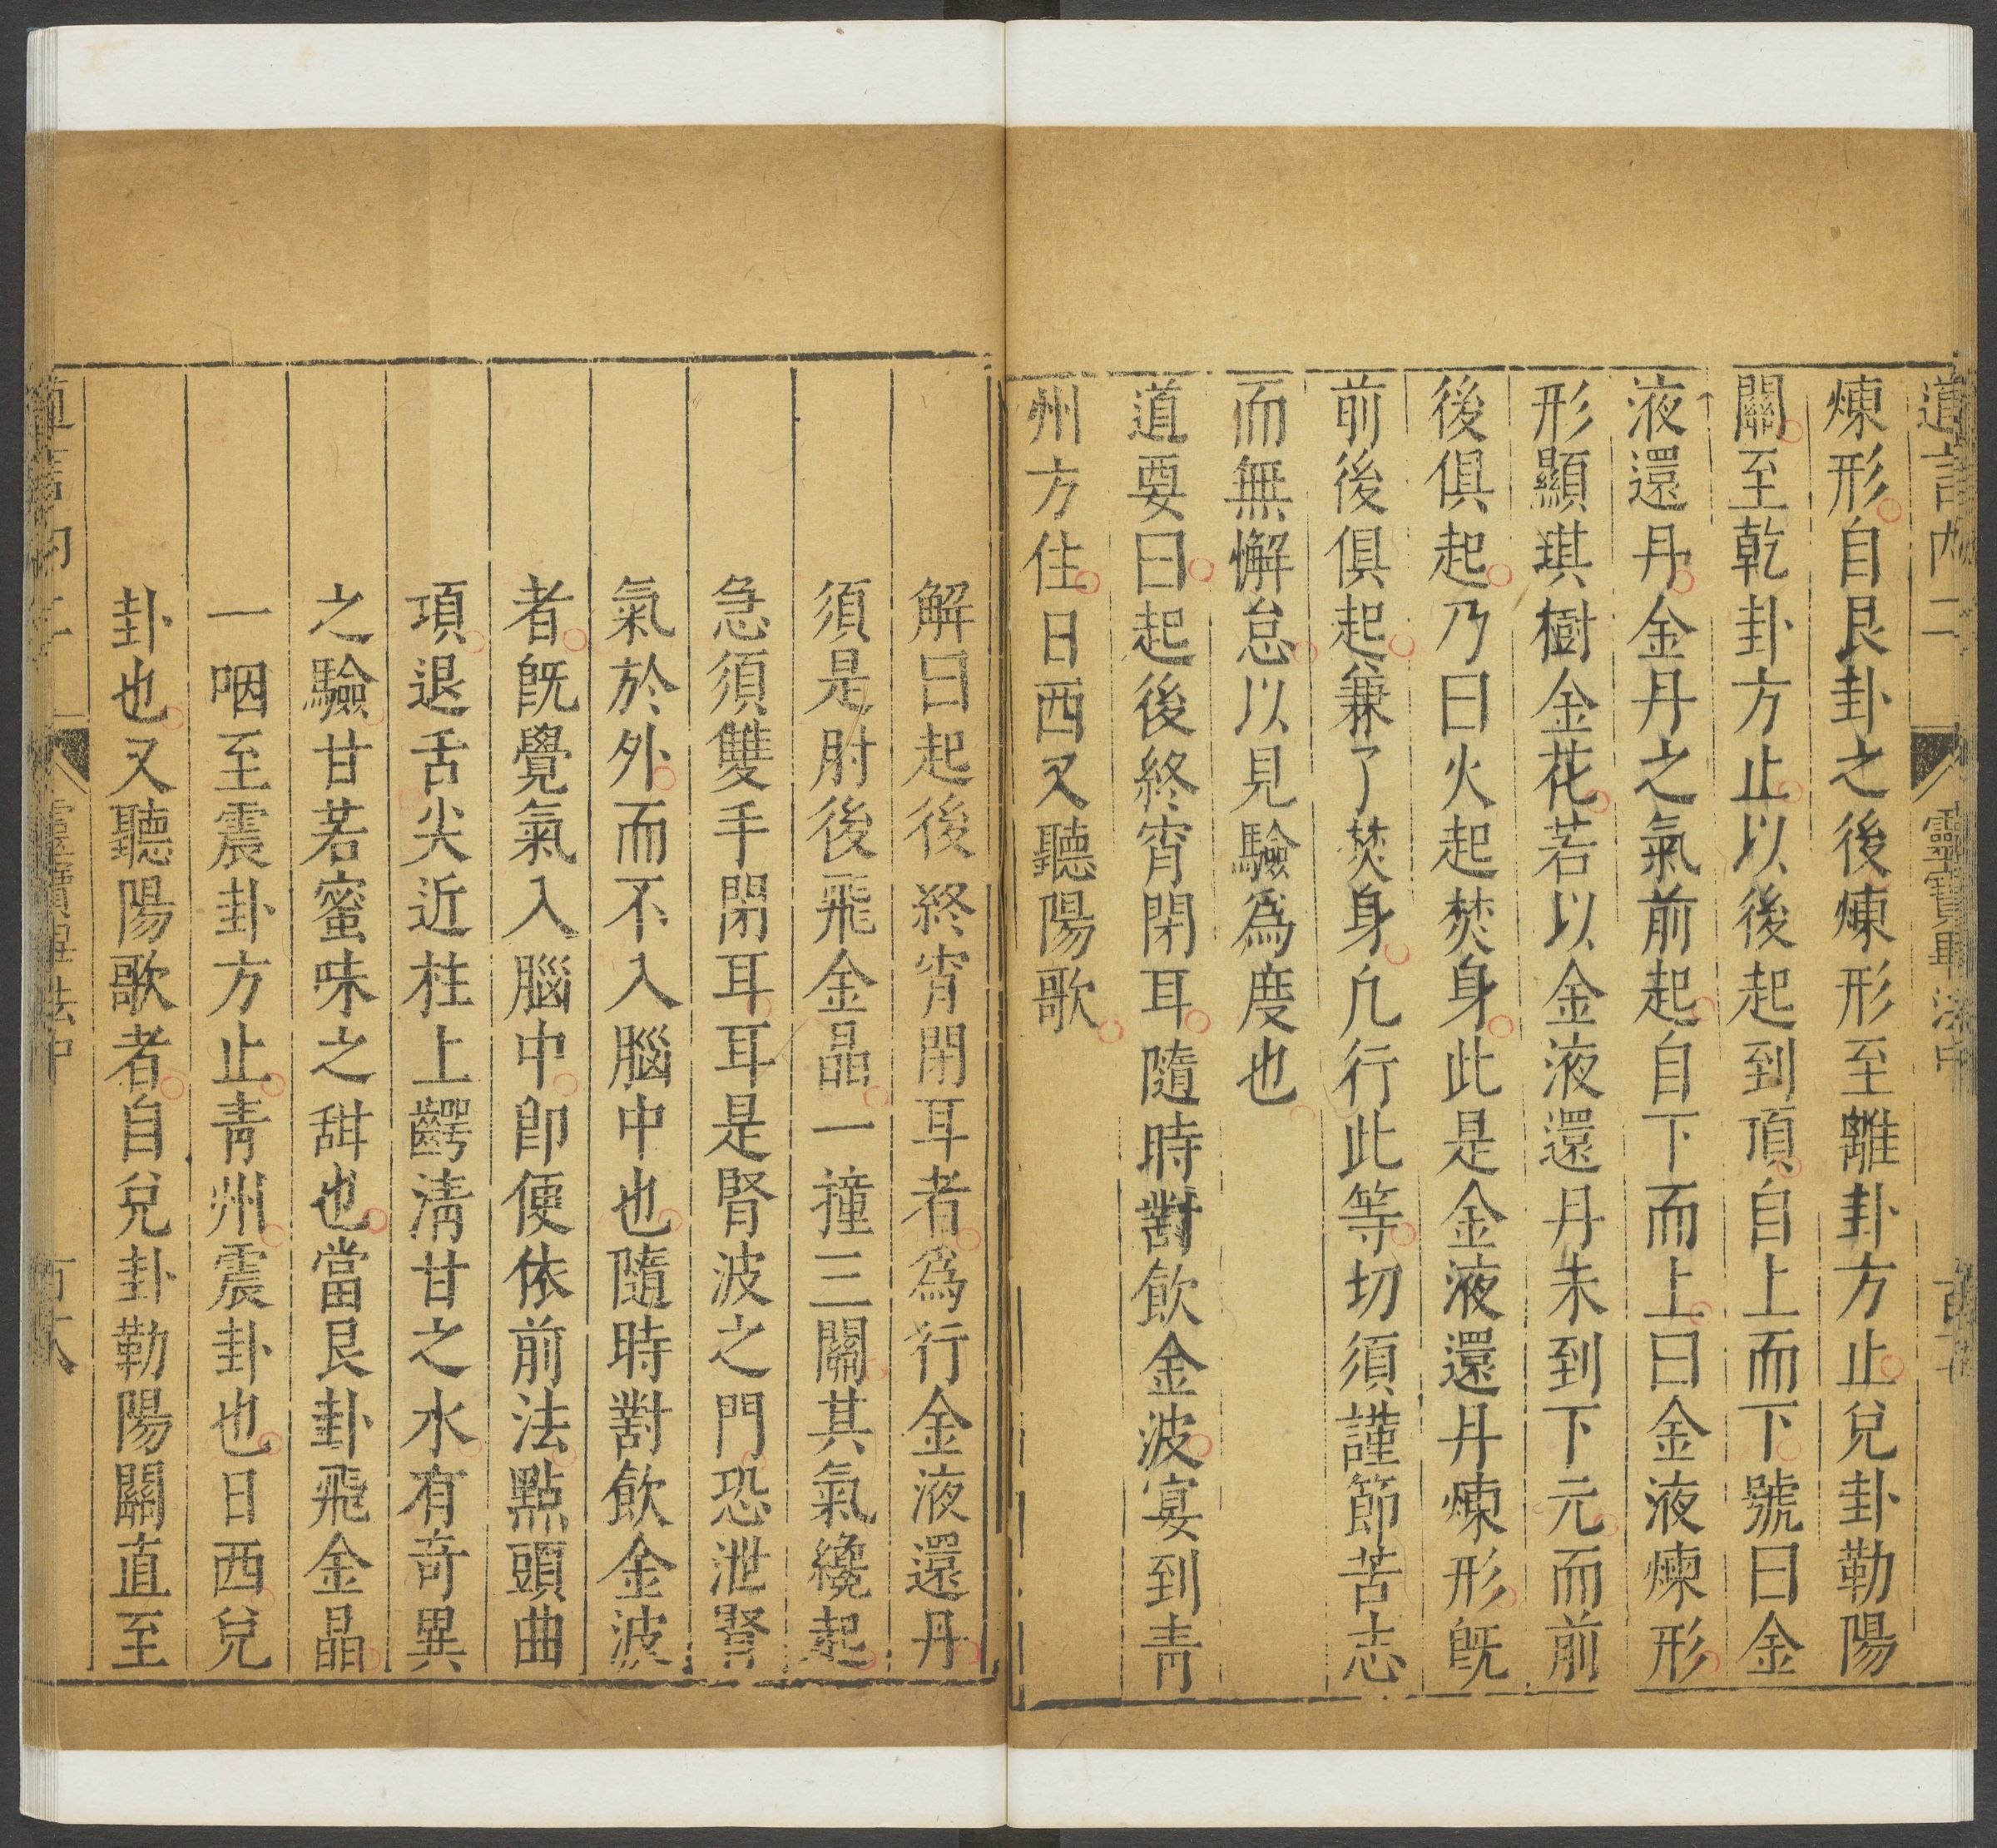 道言內二 靈寶畢法中
煉形自艮卦之後煉形至離卦方止兌卦勒陽
關至乾卦方止以後起到頂自上而下號曰金
液還丹金丹之氣前起自下而上曰金液煉形
形顯琪樹金花若以金液還丹未到下元而前
後俱起乃曰火起焚身此是金液還丹煉形既
前後俱起兼了焚身凡行此等切須謹節苦志
而無懈怠以見驗爲度也
道要曰起後終宵閉耳隨時對飲金波宴到青
州方住日西又聽陽歌
解曰起後終宵閉耳者爲行金液還丹
須是肘後飛金晶一撞三關其氣纔起
急須雙手閉耳耳是腎波之門恐泄腎
氣於外而不入腦中也隨時對飲金波
者既覺氣入腦中卽便依前法點頭曲
項退舌尖近柱上齶淸甘之水有奇異
之驗甘若蜜味之甜也當艮卦飛金晶
一咽至震卦方止靑州震卦也日西兌
卦也又聽陽歌者自兌卦勒陽關直至
道言內二 靈寶畢法中